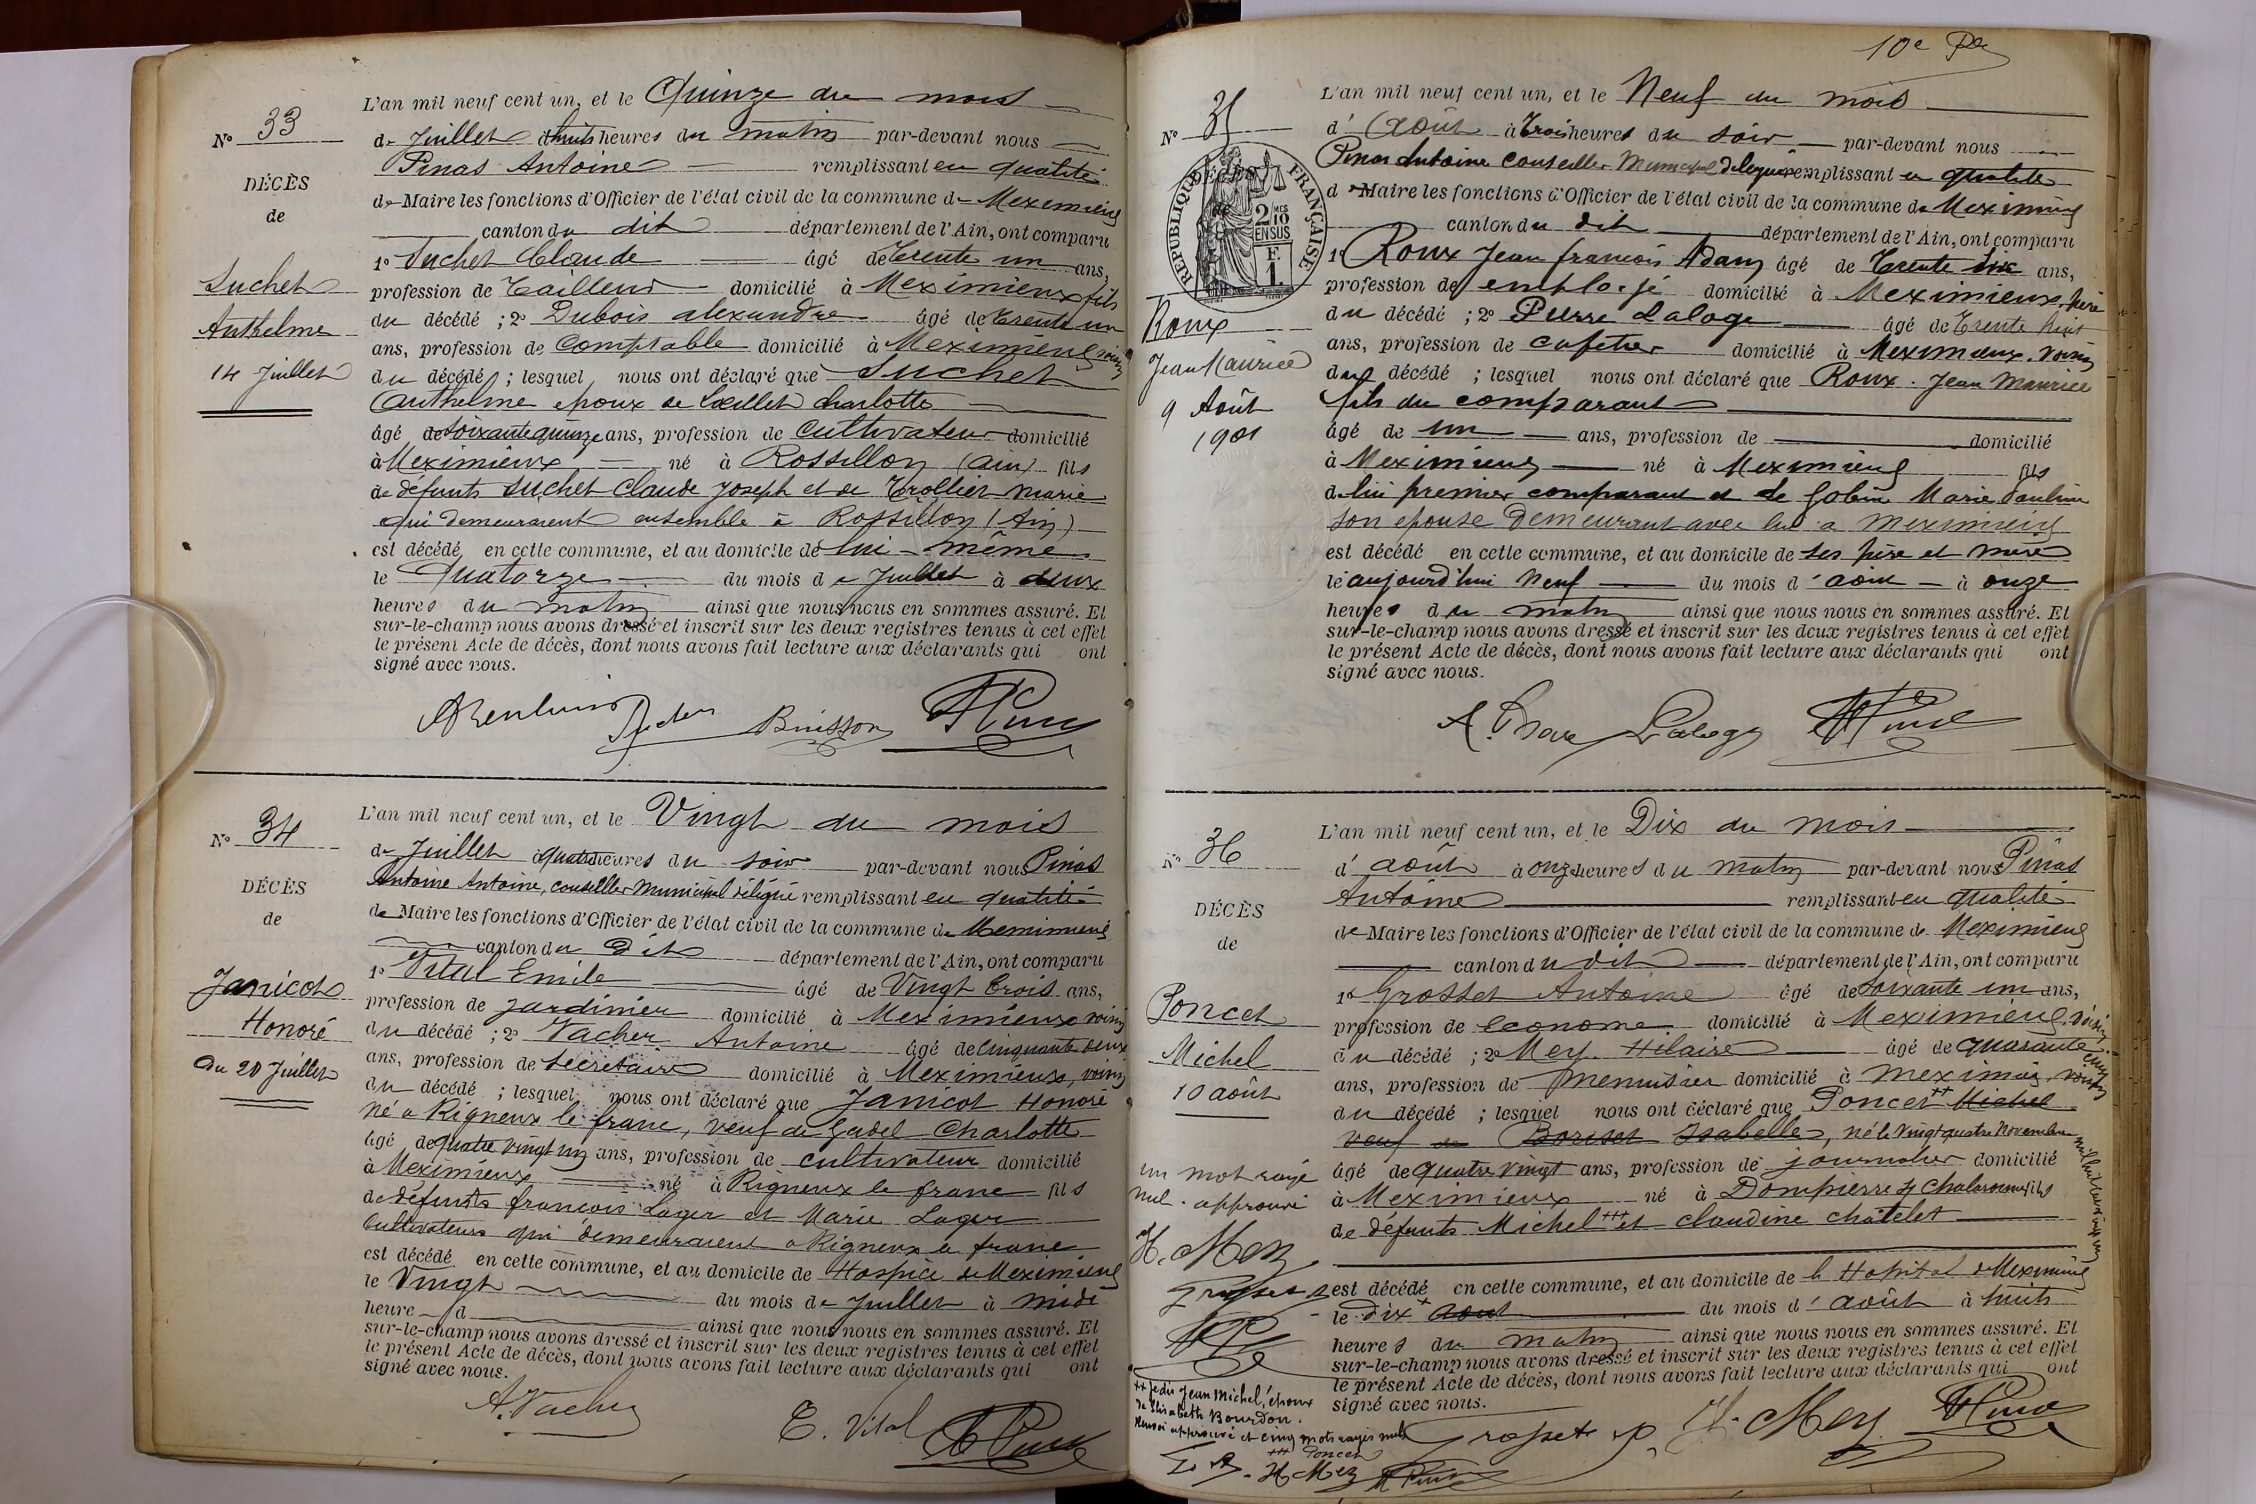 N° 33
DÉCÈS
de
Suchet
Anthelme
14 Juillet
L'an mil neuf cent un, et le Quinze du mois
de Juillet à huit heures du matin par-devant nous
Pinas Antoine remplissant en qualité
de Maire les fonctions d'Officier de l'état civil de la commune de Meximieux
canton du dit département de l'Ain, ont comparu
1° Suchet Claude âgé de trente un ans,
profession de Tailleur domicilié à Meximieux fils
du décédé ; 2° Dubois alexandre âgé de trente un
ans, profession de Comptable domicilié à Meximieux voisin
du décédé ; lesquel nous ont déclaré que Suchet
Anthelme époux de Charlotte
âgé de soixante quinze ans, profession de Cultivateur domicilié
à Meximieux né à Rossillon (Ain) fils
de défunts Suchet Claude Joseph et de Trollier Marie
qui demeuraient ensemble à Rossillon (Ain)
est décédé en cette commune, et au domicile de lui-même
le Quatorze du mois de Juillet à deux
heures du matin ainsi que nous nous en sommes assuré. Et
sur-le-champ nous avons dressé et inscrit sur les deux registres tenus à cet effet
le présent Acte de décès, dont nous avons fait lecture aux déclarants qui ont
signé avec nous.
Buisson
N° 34
DÉCÈS
de
Janicot
Honoré
du 20 Juillet
L'an mil neuf cent un, et le Vingt du mois
de Juillet à quatre heures du soir par-devant nous Pinas
Antoine Antoine, conseiller municipal délégué remplissant en qualité
de Maire les fonctions d'Officier de l'état civil de la commune de Meximieux
canton du dit département de l'Ain, ont comparu
1° Vital Emile âgé de Vingt trois ans,
profession de jardinier domicilié à Meximieux voisin
du décédé ; 2° Vacher Antoine âgé de cinquante deux
ans, profession de Secrétaire domicilié à Meximieux, voisin
du décédé ; lesquel nous ont déclaré que Janicot Honoré
né à Rigneux le franc, veuf de Gadel Charlotte
âgé de quatre vingt un ans, profession de cultivateur domicilié
à Meximieux né à Rigneux le franc fils
de défunts françois Lager et Marie Lager
Cultivateurs qui demeuraient à Rigneux le franc
est décédé en cette commune, et au domicile de Hospice de Meximieux
le Vingt du mois de Juillet à midi
heure d ainsi que nous nous en sommes assuré. Et
sur-le-champ nous avons dressé et inscrit sur les deux registres tenus à cet effet
le présent Acte de décès, dont nous avons fait lecture aux déclarants qui ont
signé avec nous.
A. Vacher
E. Vital
10e
N° 35
RÉPUBLIQUE FRANÇAISE
2 MES
10
EN SUS
F.
1.
Roux
Jean Maurice
9 Août
1901
L'an mil neuf cent un, et le Neuf du mois
d'Août à trois heures du soir par-devant nous
Pinas Antoine Conseiller Municipal délégué remplissant en qualité
de Maire les fonctions d'Officier de l'état civil de la commune de Meximieux
canton du dit département de l'Ain, ont comparu
1° Roux Jean françois Adam âgé de trente six ans,
profession de employé domicilié à Meximieux, père
du décédé ; 2° Pierre Laloge âgé de trente huit
ans, profession de cafetier domicilié à Meximieux voisin
du décédé ; lesquel nous ont déclaré que Roux Jean Maurice
fils du comparant
âgé de un ans, profession de domicilié
à Meximieux né à Meximieux fils
de lui premier comparant et de Marie Pauline
son épouse demeurant avec lui à Meximieux
est décédé en cette commune, et au domicile de ses père et mère
le aujourd'hui Neuf du mois d'août à onze
heures du matin ainsi que nous nous en sommes assuré. Et
sur-le-champ nous avons dressé et inscrit sur les deux registres tenus à cet effet
le présent Acte de décès, dont nous avons fait lecture aux déclarants qui ont
signé avec nous.
Laloge
N° 36
DÉCÈS
de
Poncet
Michel
10 août
un mot rayé
nul approuvé
H. Mey
L'an mil neuf cent un, et le Dix du mois
d'août à onze heures du matin par-devant nous Pinas
Antoine remplissant en qualité
de Maire les fonctions d'Officier de l'état civil de la commune de Meximieux
canton du dit département de l'Ain, ont comparu
1° Grosset Antoine âgé de soixante un ans,
profession de économe domicilié à Meximieux, voisin
du décédé ; 2° Mey Hilaire âgé de quarante cinq
ans, profession de menuisier domicilié à Meximieux, voisin
du décédé ; lesquel nous ont déclaré que Poncet ++ Michel
veuf de Isabelle, né le vingt quatre novembre
âgé de quatre vingt ans, profession de journalier domicilié
à Meximieux né à Dompierre de Chalaronne fils
de défunts Michel +++ et Claudine Châtelet
est décédé en cette commune, et au domicile de l'Hôpital de Meximieux
le dix + aout du mois d'août à huit
heures du matin ainsi que nous nous en sommes assuré. Et
sur-le-champ nous avons dressé et inscrit sur les deux registres tenus à cet effet
le présent Acte de décès, dont nous avons fait lecture aux déclarants qui ont
signé avec nous.
++ Jean Michel, époux
de Elisabeth Bourdon.
Renvoi approuvé et cinq mots rayés nuls
+++ Poncet
H Mey
Grosset
H. Mey